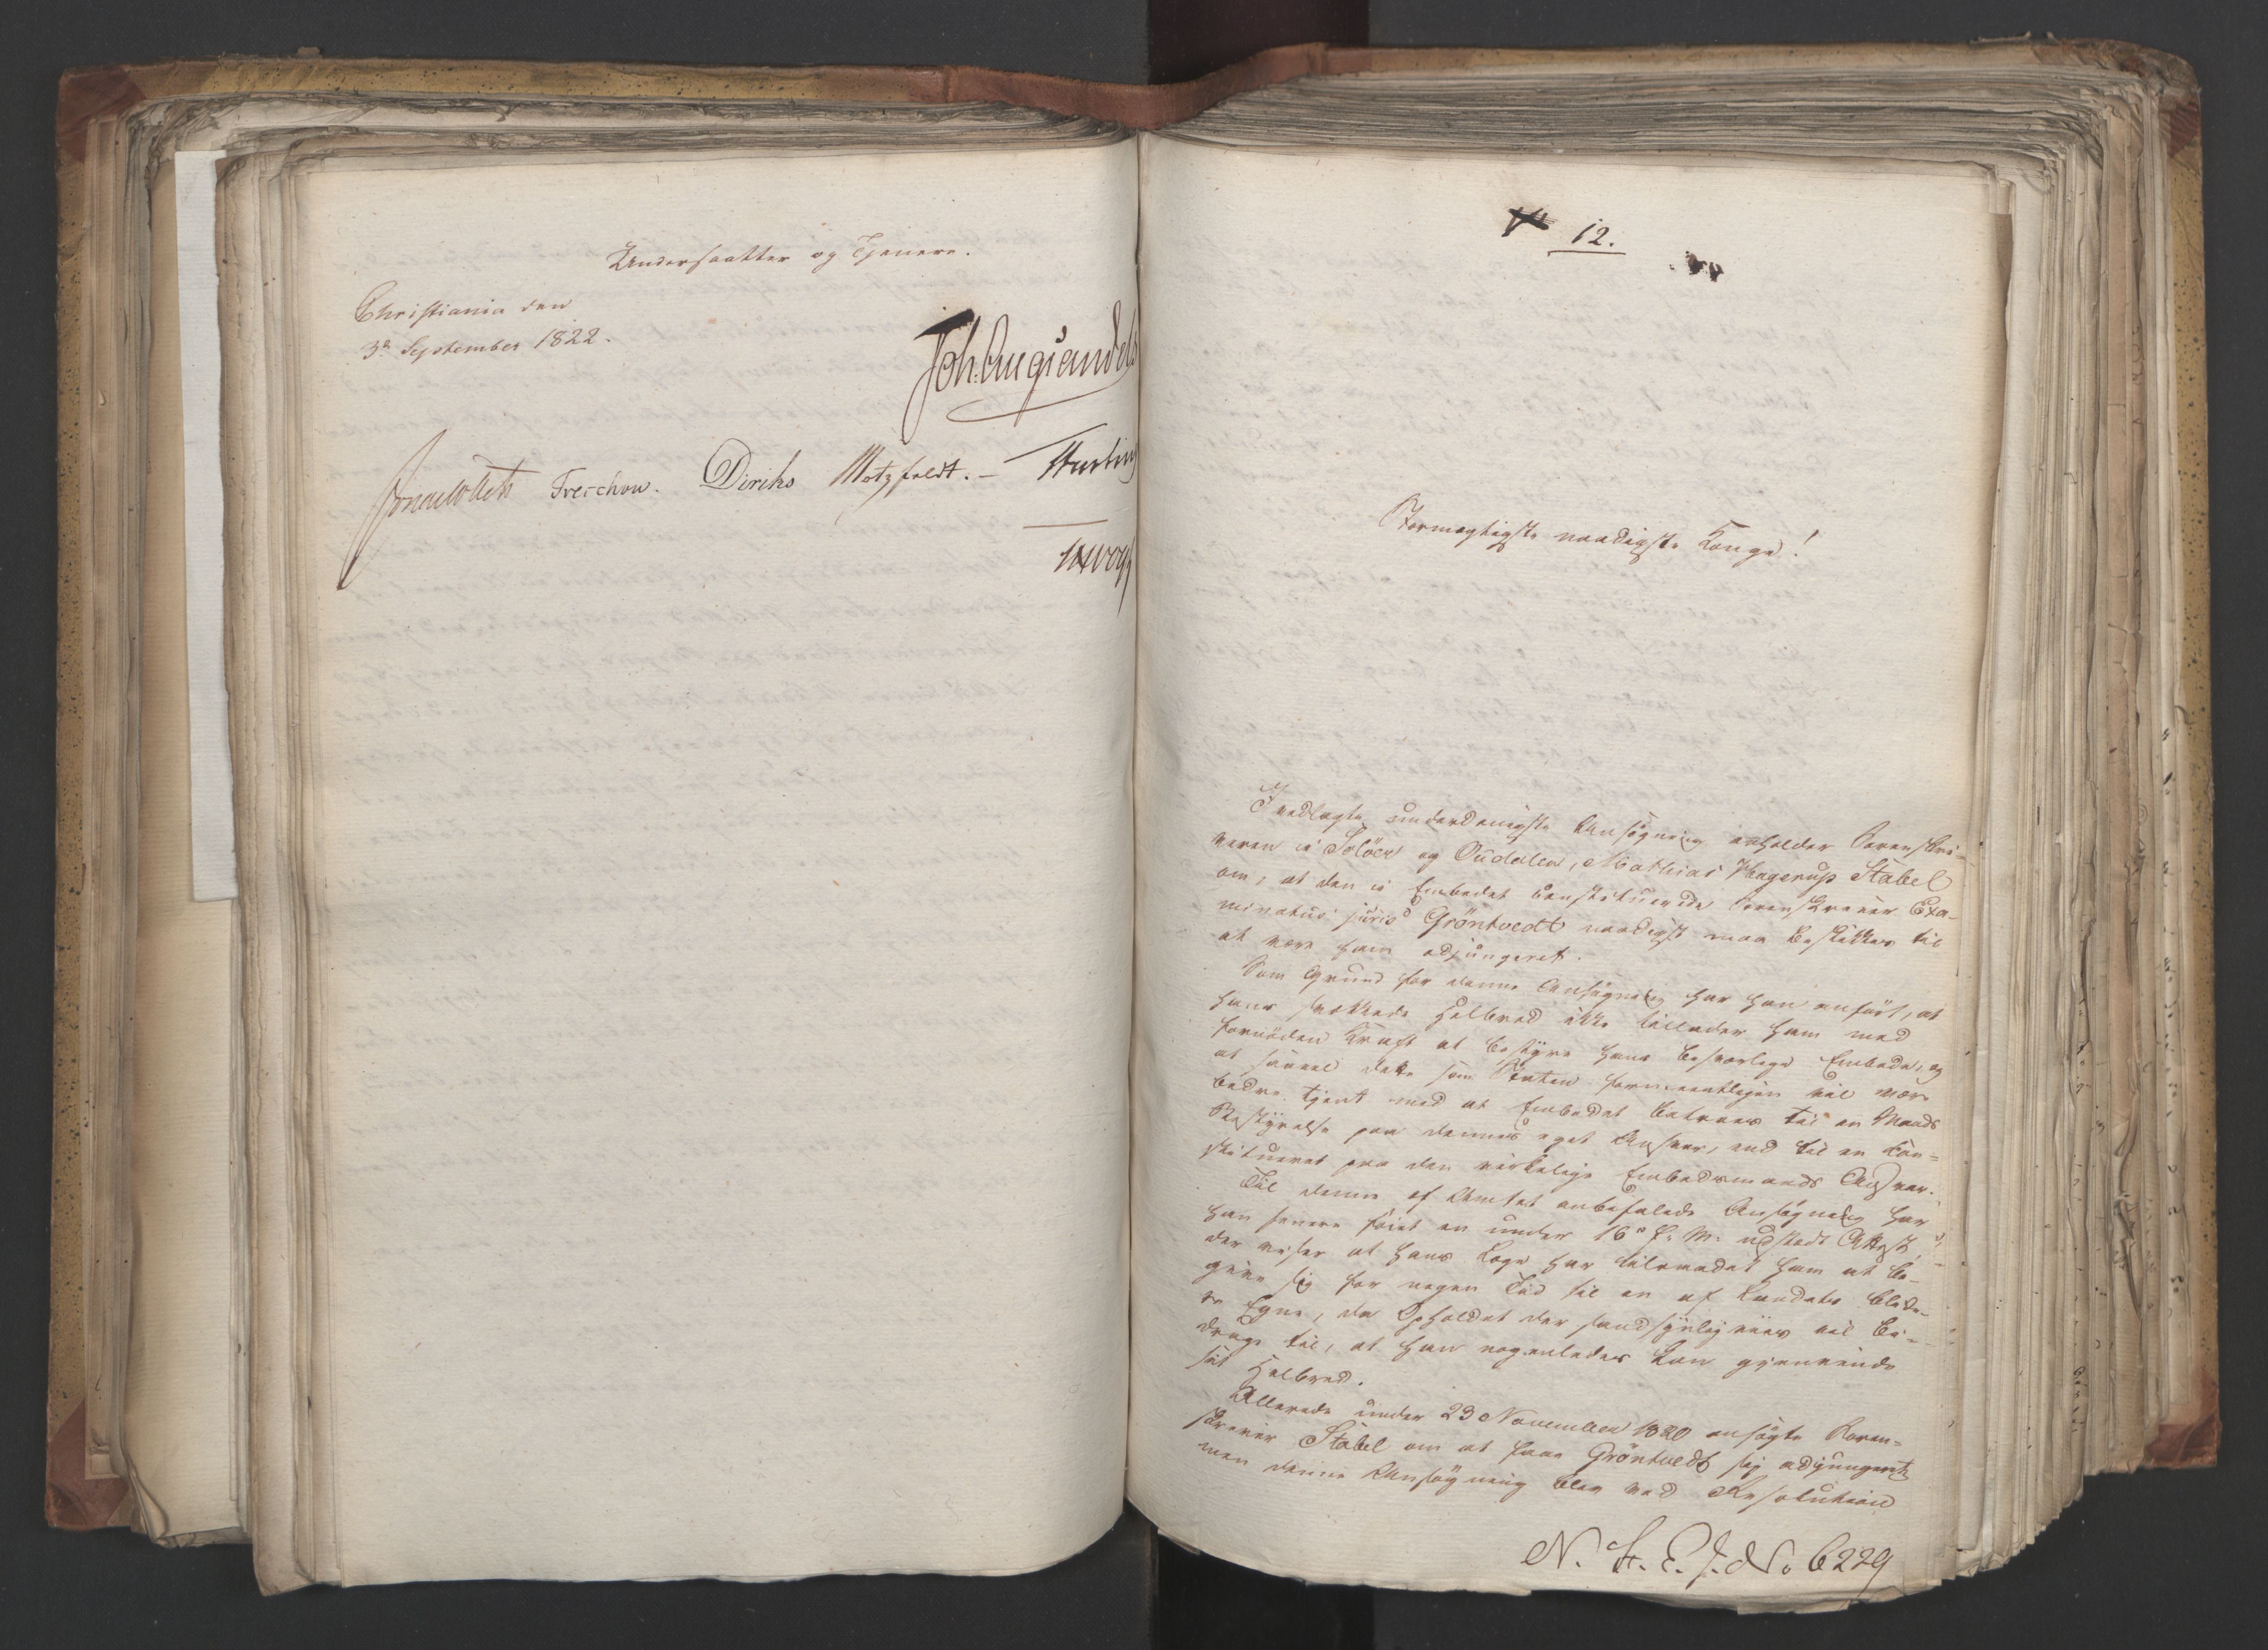 Undersaatter og Tjenere.
Christiania den
3de September 1822.
Joh. Aug. Sandels
Jonas Collett Treschow. Diriks Motzfeldt. –
12.
Stormægtigste naadigste Konge!
I vedlagte underdanigste Ansøgning anholder Sorenskri-
veren i Soløer og Oudalen, Mathias Hagerup Stabel
om, at den i Embedet constituerede Sorenskriver Exa-
minatus juris Gröntvedt naadigst maa beskikkes til
at være ham adjungeret.
Som Grund for denne Ansøgning har han anført, at
hans svækkede Helbred ikke tillader ham med
fornøden Kraft at bestyre hans besværlige Embede, og
at saavel dette som Staten formeentligen vil være
bedre tjent med at Embedet betroes til en Mands
Bestyrelse paa dennes eget Ansvar, end til en Con-
stitueret paa den virkelige Embedsmands Ansvar.
Til denne af Amtet anbefalede Ansøgning har
han senere føiet en under 16de f. M. udstedt Attest,
der viser at hans Læge har tilraadet ham at be-
give sig for nogen Tid til en af Landets blide-
re Egne, da Opholdet der sandsynligviis vil bi-
drage til, at han nogenledes kan gjenvinde
sit Helbred.
Allerede under 23 November 1820 ansøgte Soren-
skriver Stabel om at faae Gröntvedt sig adjungeret
men denne Ansøgning blev ved Resolution
N. St. E. J. No 6229